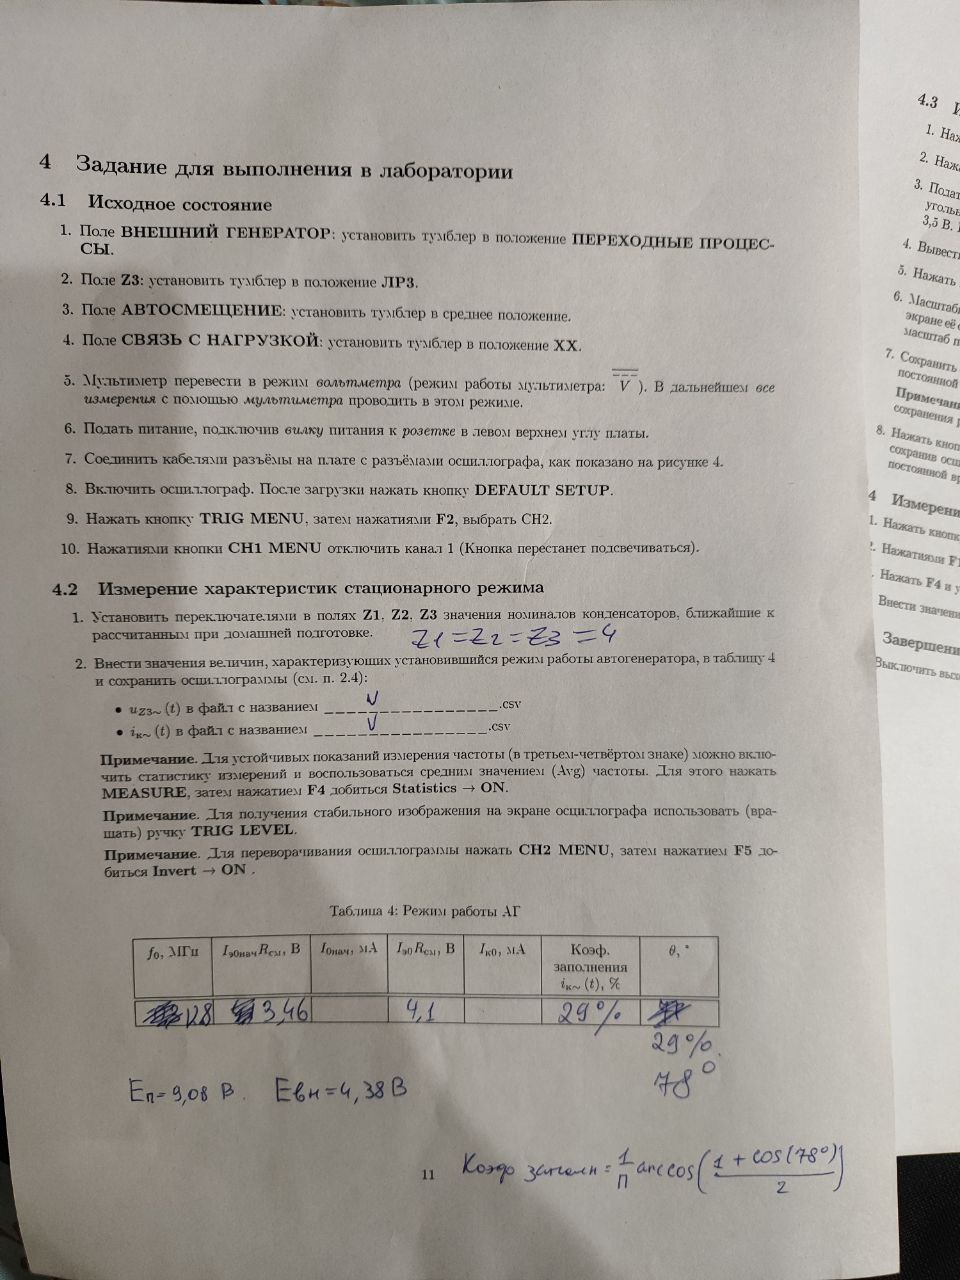 4 Задание для выполнения в лаборатории
4.1 Исходное состояние
1. Поле ВНЕШНИЙ ГЕНЕРАТОР: установить тумблер в положение ПЕРЕХОДНЫЕ ПРОЦЕС-
СЫ.
2. Поле Z3: установить тумблер в положение ЛР3.
3. Поле АВТОСМЕЩЕНИЕ: установить тумблер в среднее положение.
4. Поле СВЯЗЬ С НАГРУЗКОЙ: установить тумблер в положение XX.
5. Мультиметр перевести в режим вольтметра (режим работы мультиметра: V). В дальнейшем все
измерения с помощью мультиметра проводить в этом режиме.
6. Подать питание, подключив вилку питания к розетке в левом верхнем углу платы.
7. Соединить кабелями разъёмы на плате с разъёмами осциллографа, как показано на рисунке 4.
8. Включить осциллограф. После загрузки нажать кнопку DEFAULT SETUP.
9. Нажать кнопку TRIG MENU, затем нажатиями F2, выбрать CH2.
10. Нажатиями кнопки CH1 MENU отключить канал 1 (Кнопка перестанет подсвечиваться).
4.2 Измерение характеристик стационарного режима
1. Установить переключателями в полях Z1, Z2, Z3 значения номиналов конденсаторов, ближайшие к
рассчитанным при домашней подготовке. Z1 = Z2 = Z3 = 4
2. Внести значения величин, характеризующих установившийся режим работы автогенератора, в таблицу 4
и сохранить осциллограммы (см. п. 2.4):
• uZ3~(t) в файл с названием ________________.csv
• iк~(t) в файл с названием ________________.csv
Примечание. Для устойчивых показаний измерения частоты (в третьем-четвёртом знаке) можно вклю-
чить статистику измерений и воспользоваться средним значением (Avg) частоты. Для этого нажать
MEASURE, затем нажатием F4 добиться Statistics → ON.
Примечание. Для получения стабильного изображения на экране осциллографа использовать (вра-
щать) ручку TRIG LEVEL.
Примечание. Для переворачивания осциллограммы нажать CH2 MENU, затем нажатием F5 до-
биться Invert → ON .
Таблица 4: Режим работы АГ
f0, МГц Iэ0начRсм, В I0нач, мА Iэ0Rсм, В Iк0, мА Коэф. θ, °
заполнения
iк~(t), %
1,28 3,46 4,1 29%
29%
78°
Eп = 9,08 В. Eвн = 4,38 В
11 Коэф заполн = 1/П arccos((1 + cos(78°))/2)
4.3
1. Наж
2. Нажа
3. Подат
уголь
3,5 В.
4. Вывести
5. Нажать
6. Масштаби
экране её
масштаб п
7. Сохранить
постоянной
Примечани
сохранения р
8. Нажать кноп
сохранив осц
постоянной вр
4 Измерени
1. Нажать кнопк
Нажатиями F1
Нажать F4 и у
Внести значени
Завершени
Выключить вых